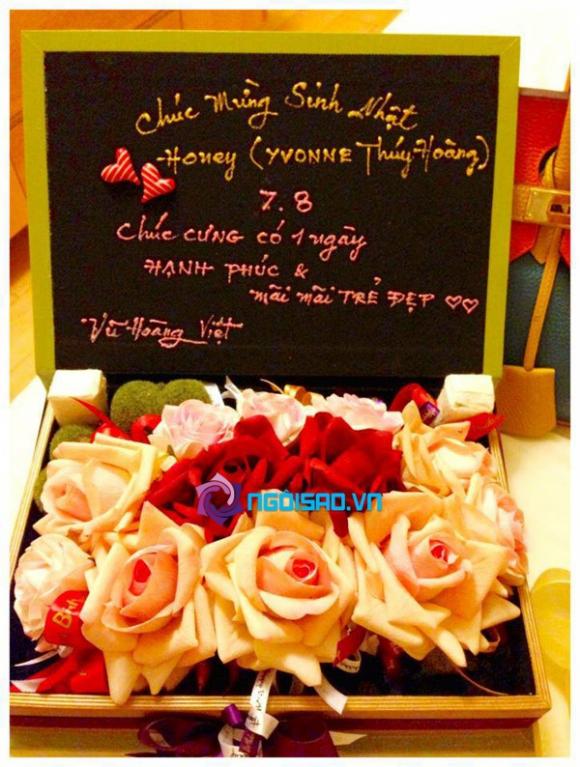 Chúc Mừng Sinh Nhật
Honey (YVONNE Thúy Hoàng)
7.8
Chúc CƯNG CÓ 1 ngày
HẠNH PHÚC &
mãi mãi TRẺ ĐẸP ♡♡
Vũ Hoàng Việt
NGÔISAO.VN